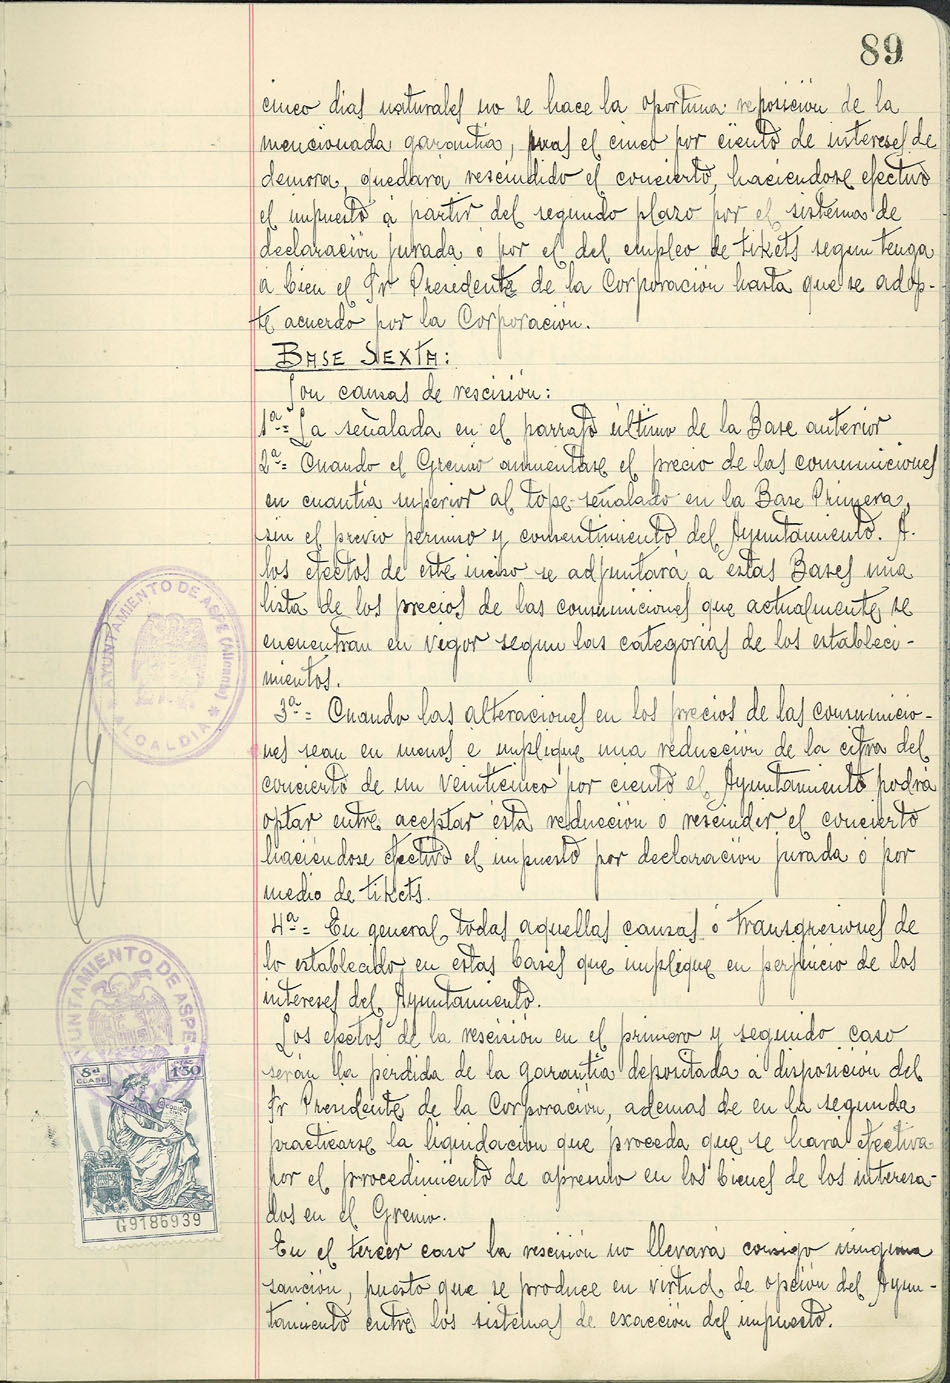 89
cinco dias naturales no se hace la oportuna reposición de la
mencionada garantía, mas el cinco por ciento de intereses de
demora, quedará rescindido el concierto, haciéndose efectivo
el impuesto á partir del segundo plazo por el sistema de
declaración jurada ó por el del empleo de tikets segun tenga
á bien el Sr Presidente de la Corporación hasta que se adop-
te acuerdo por la Corporación.
BASE SEXTA:
Son causas de rescisión:
1ª= La señalada en el parrafo último de la Base anterior
2ª= Cuando el Gremio aumentase el precio de las consumiciones
en cuantía superior al tope señalado en la Base Primera,
sin el previo permiso y consentimiento del Ayuntamiento. A
los efectos de este inciso se adjuntará a estas Bases una
lista de los precios de las consumiciones que actualmente se
encuentran en vigor segun las categorías de los estableci-
mientos.
3ª= Cuando las alteraciones en los precios de las consumicio-
nes sean en menos é implique una reducción de la cifra del
concierto de un veinticinco por ciento el Ayuntamiento podrá
optar entre aceptar ésta reducción ó rescindir el concierto
haciéndose efectivo el impuesto por declaración jurada ó por
medio de tikets.
4ª= En general todas aquellas causas ó transgresiones de
lo establecido en estas bases que implique en perjuicio de los
intereses del Ayuntamiento.
Los efectos de la rescisión en el primero y segundo caso
serán la pérdida de la garantía depositada á disposición del
Sr Presidente de la Corporación, ademas de en la segunda
practicarse la liquidación que proceda que se hará efectiva
por el procedimiento de apremio en los bienes de los interesa-
dos en el Gremio.
En el tercer caso la rescisión no llevará consigo ninguna
sanción, puesto que se produce en virtud de opción del Ayun-
tamiento entre los sistemas de exacción del impuesto.
AYUNTAMIENTO DE ASPE (Alicante)
* ALCALDIA *
AYUNTAMIENTO DE ASPE
8ª CLASE
1'50
G9186939